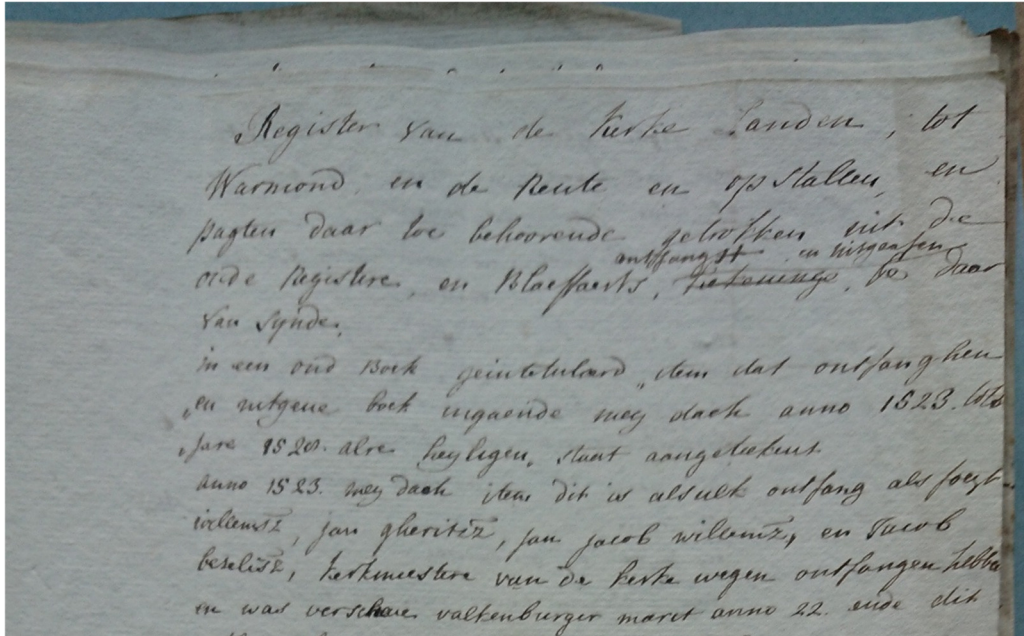 Register van de Kerke Landen, tot
Warmond, en de Rente en opstallen, en
pagten daar toe behoorende getrokken uit die
ontfangst en uitgeafen
oude Registere en Blaeffaerts, rekeninge, so daar
van synde,
in een oud Boek geintituleerd „item dat ontfanghen
„en uutgeve boek ingaende mey dach anno 1523. tots
„jare 1528. alre heyligen, staat aangetekent
anno 1523. mey dach item dit is alsulk ontfang als joeyt
willemsz, jan gheritsz, jan jacob willemsz, en Jacob
kerkmeestere van de kerke wegen ontfangen hebben
en was verschene valkenburger marct anno 22. ende dit